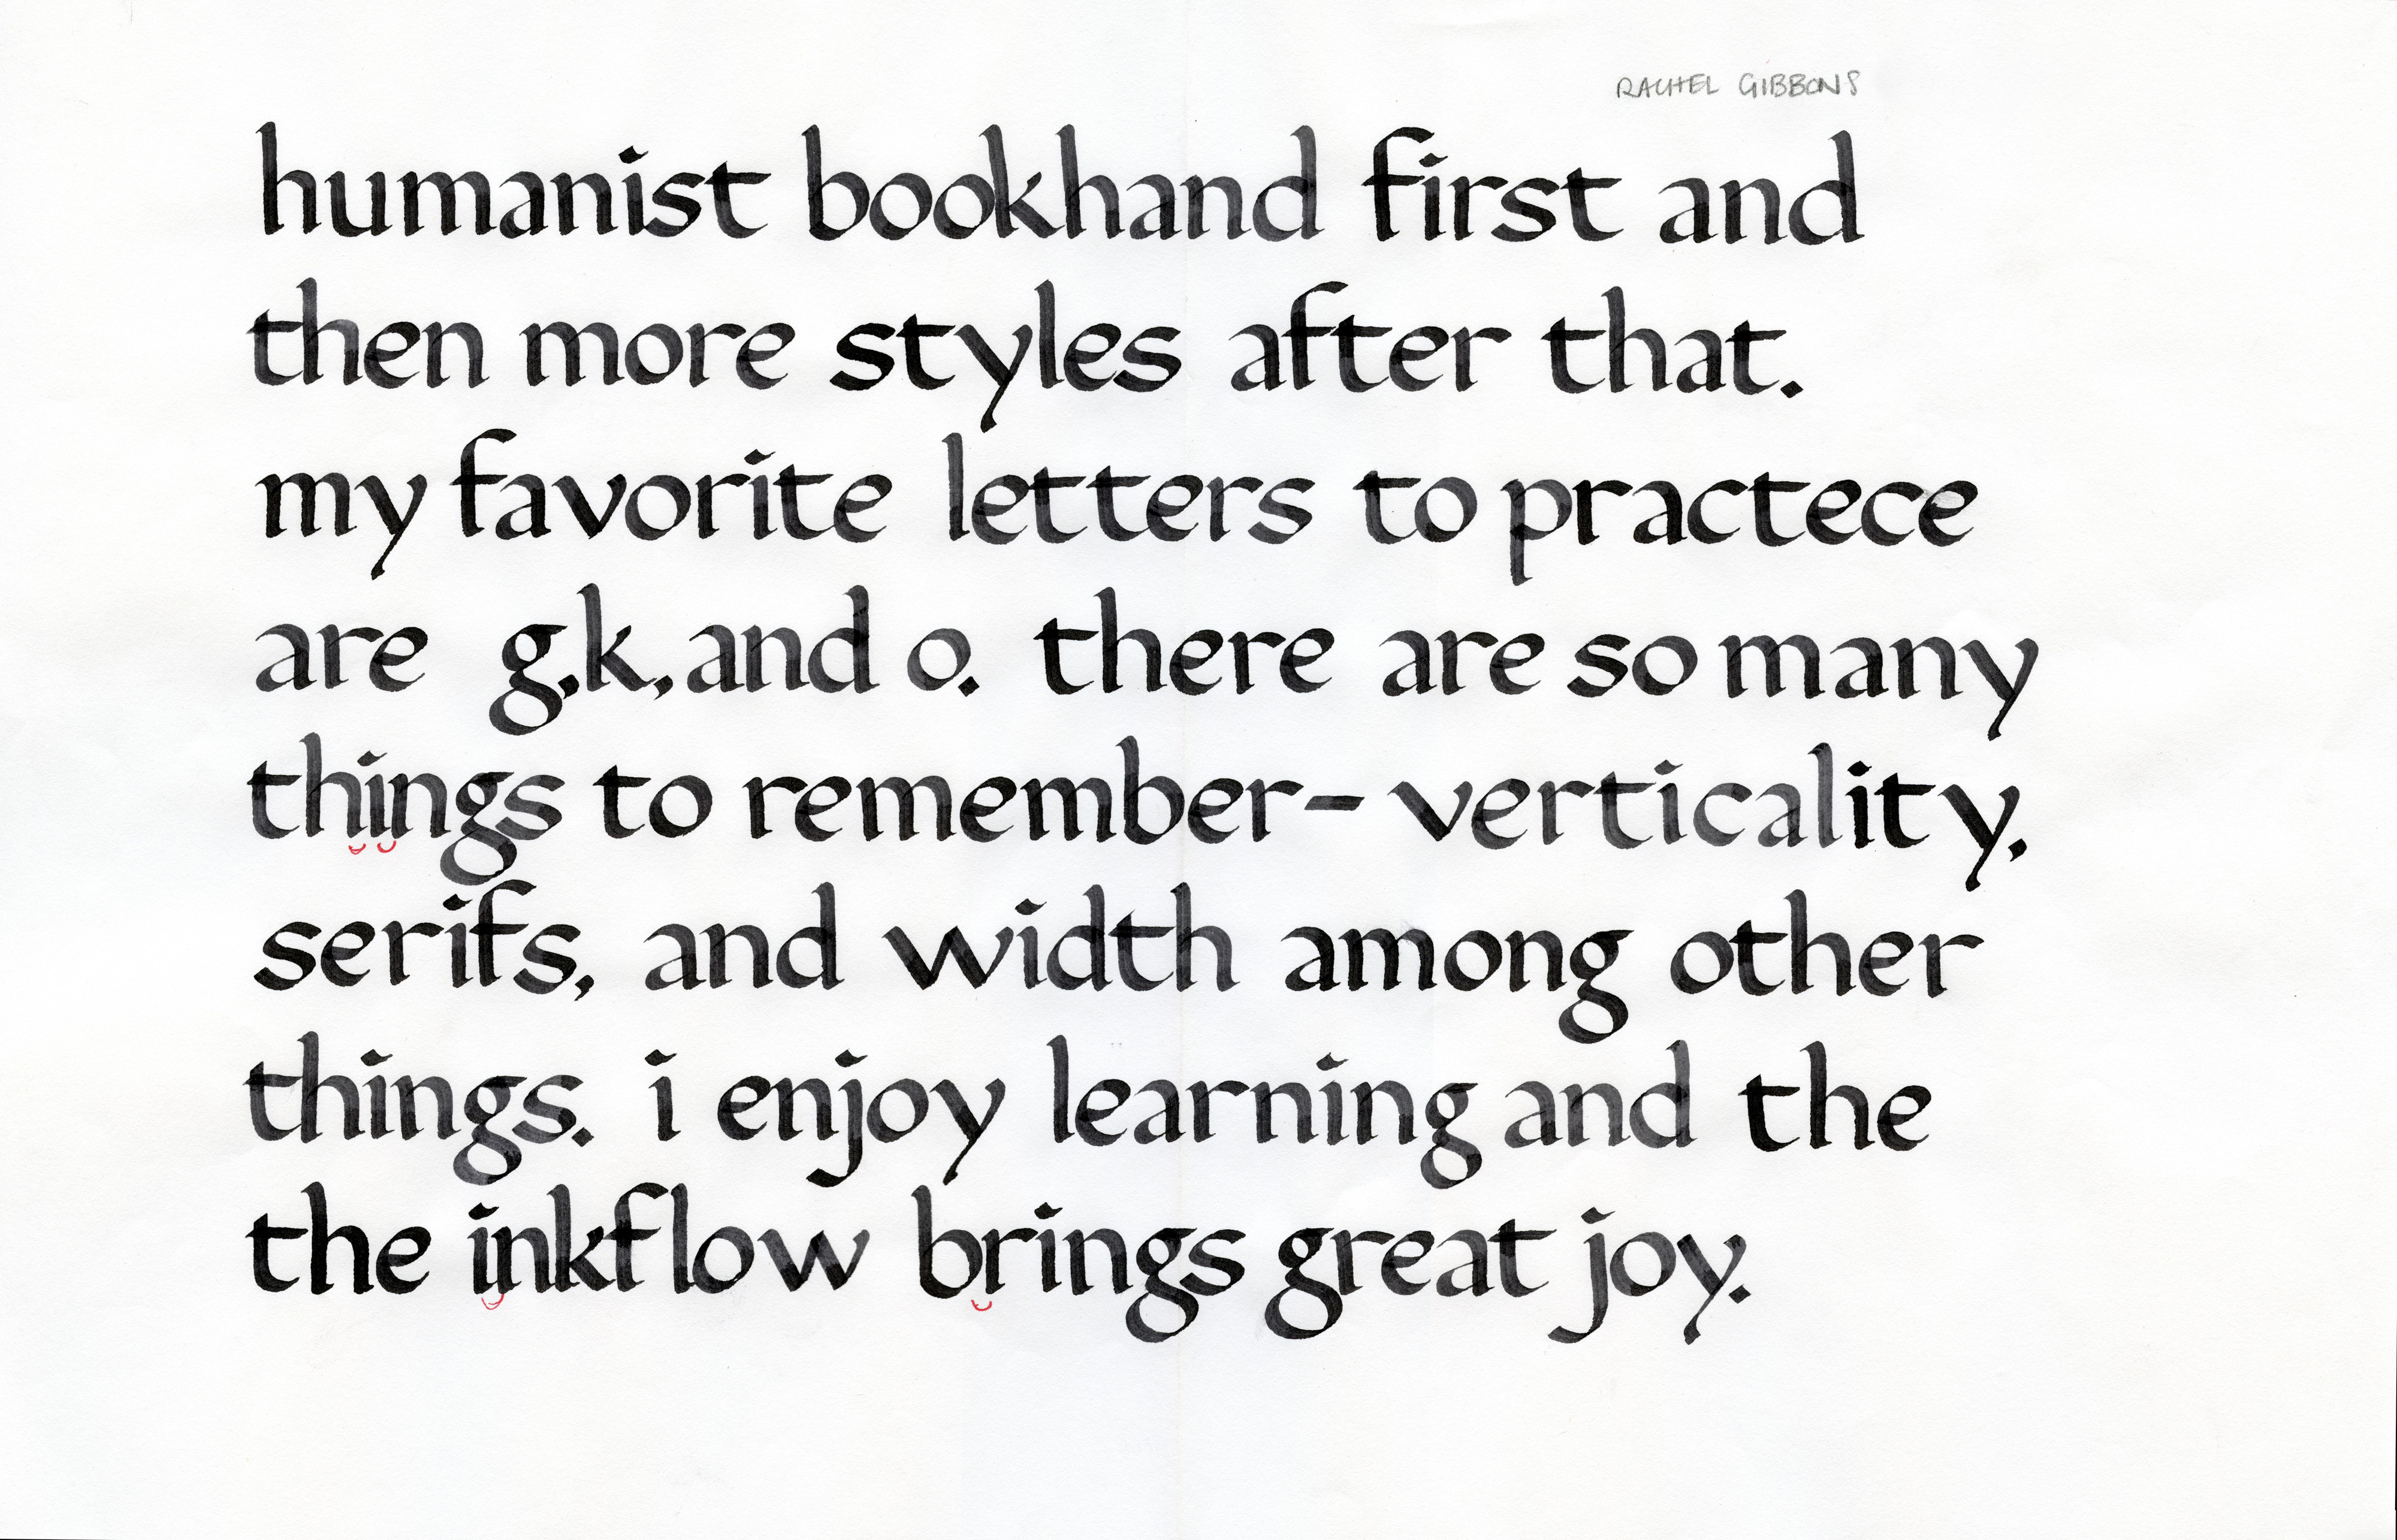 RACHEL GIBBONS
humanist bookhand first and
then more styles after that.
my favorite letters to practece
are g,k,and o. there are so many
things to remember- verticality,
serifs, and width among other
things. i enjoy learning and the
the inkflow brings great joy.